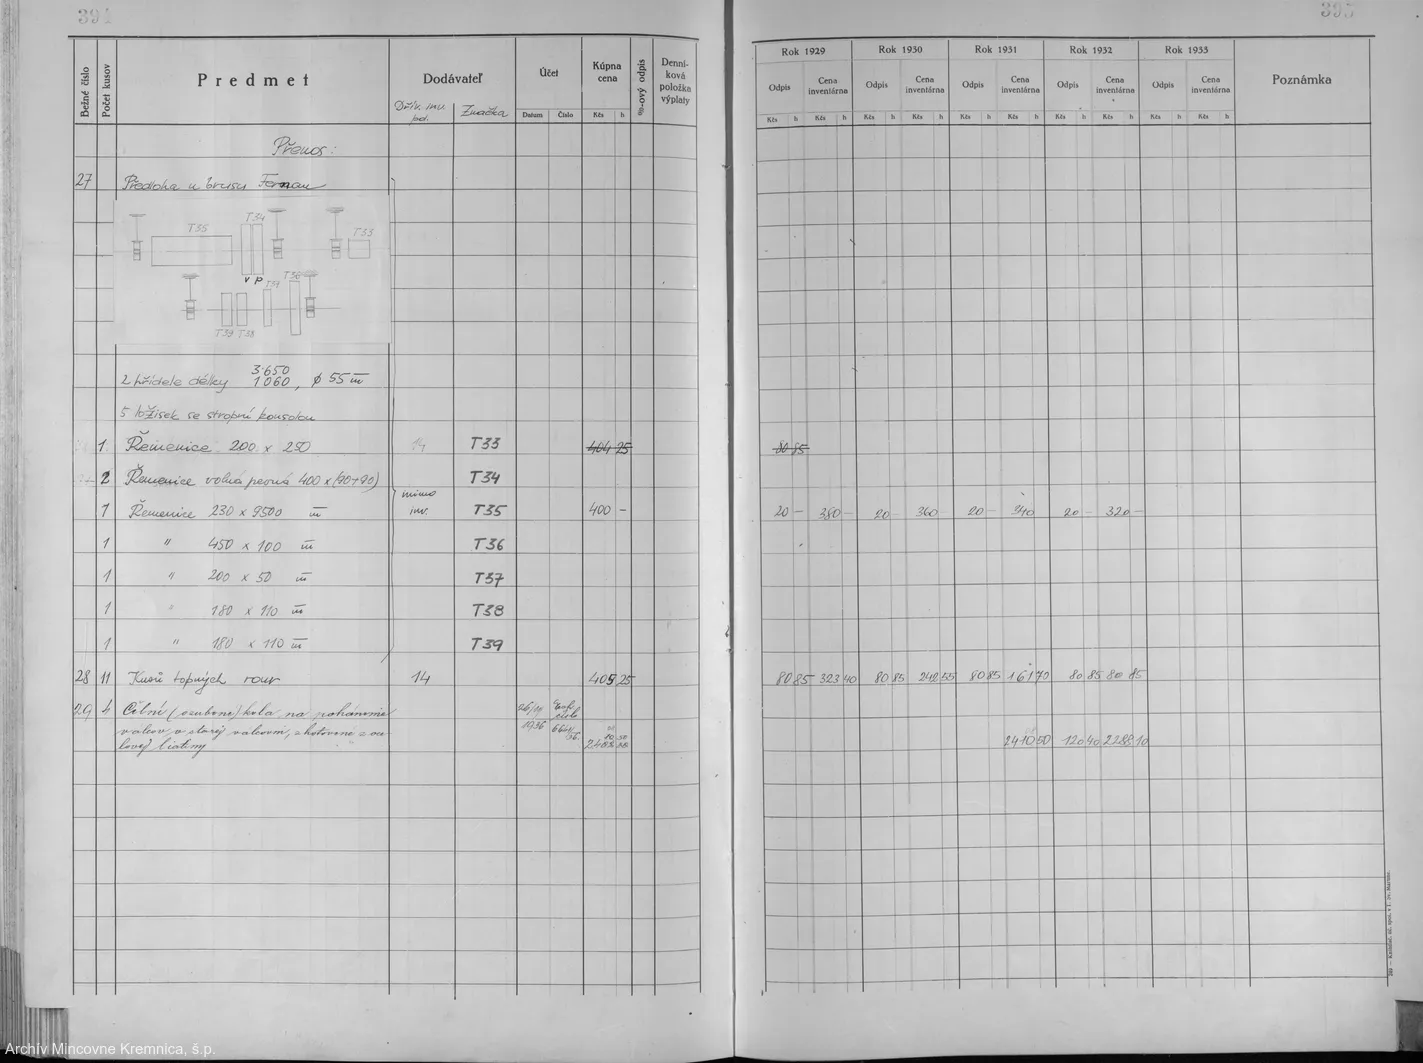 394
Bežné číslo
Počet kusov
Predmet
Dodávateľ
Dřív. inv. pol.
Značka
Účet
Datum
Číslo
Kúpna cena
Kčs h
%-ový odpis
Denníková položka výplaty
Přenos:
27 Předloha u brusu
T35 T34 T33
V P
T37 T36
T39 T38
2 hřídele délky 3·650 1060, φ 55 m̅
5 ložisek se stropní konsolou
1 Řemenice 200 x 250 14 T33 404 25
2 Řemenice volná pevná 400 x (90+90) T34
mimo inv.
1 Řemenice 230 x 9500 m̅ T35 400 –
1 " 450 x 100 m̅ T36
1 " 200 x 50 m̅ T37
1 " 180 x 110 m̅ T38
1 " 180 x 110 m̅ T39
28 11 Kusů topných rour 14 405 25
29 4 kola na
valcov v starej valcovni, zhotovené z oce-
lovej liatiny
1936
395
Rok 1929 Rok 1930 Rok 1931 Rok 1932 Rok 1933
Odpis Cena inventárna Odpis Cena inventárna Odpis Cena inventárna Odpis Cena inventárna Odpis Cena inventárna
Poznámka
Kčs h Kčs h Kčs h Kčs h Kčs h Kčs h Kčs h Kčs h Kčs h Kčs h
80 85
20 – 380 – 20 – 360 – 20 – 340 – 20 – 320 –
80 85 323 40 80 85 242 55 80 85 161 70 80 85 80 85
2410 50 120 40 2288 10
Archív Mincovne Kremnica, š.p.